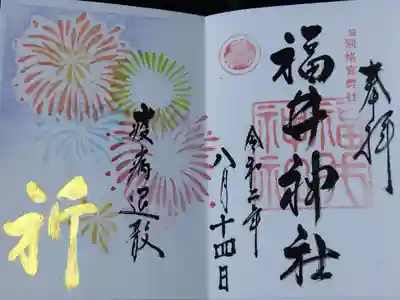 奉拝
旧別格官幣社
福井神社
令和二年
八月十四日
疫病退散
祈